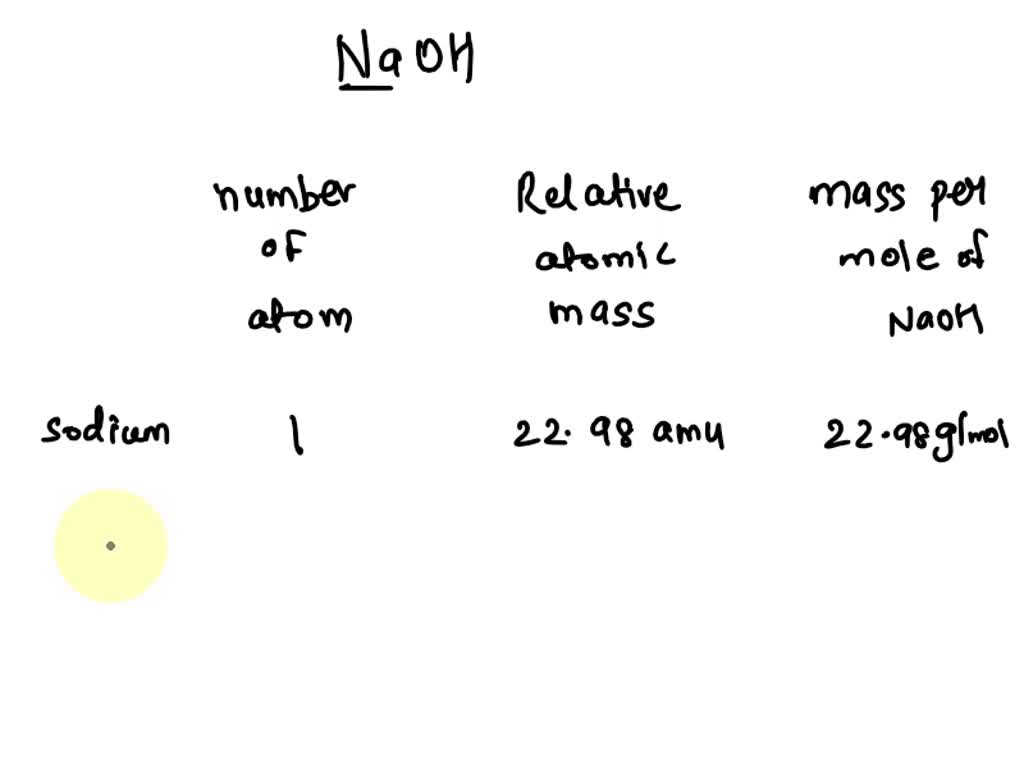 NaOH
number Relative mass per
of atomic mole of
atom mass NaOH
sodium 1 22.98 amu 22.98g/mol